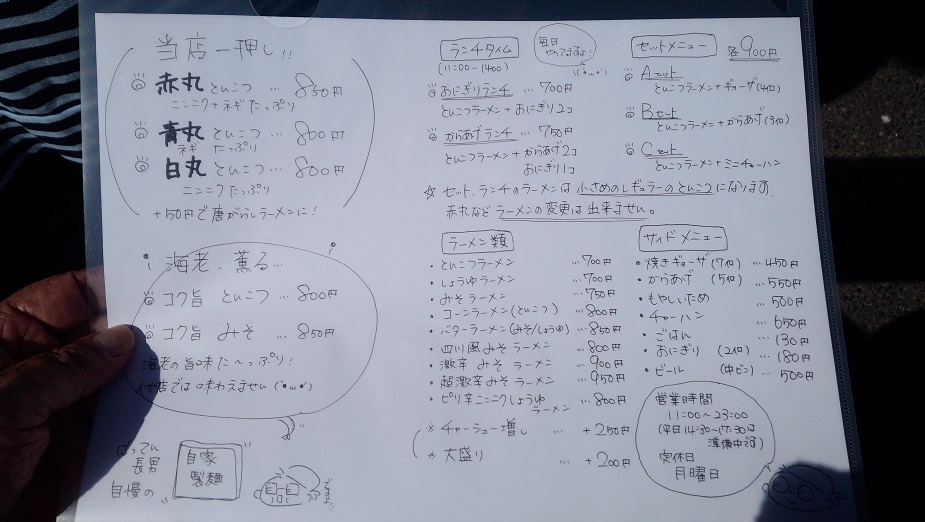 当店一押し!!
赤丸 とんこつ … 850円
ニンニク+ネギたっぷり
青丸 とんこつ … 800円
ネギたっぷり
白丸 とんこつ … 800円
ニンニクたっぷり
+50円で唐がらしラーメンに!
海老、薫る…
コク旨 とんこつ … 800円
コク旨 みそ … 850円
海老の旨味た〜っぷり!
他店では味わえません(・ω・)
ばってん
長男
自慢の
自家
製麺
ですよ
ランチタイム
(11:00-14:00)
毎日
やってますよ!
(・ω・)
おにぎりランチ … 700円
とんこつラーメン+おにぎり2コ
からあげランチ … 750円
とんこつラーメン+からあげ2コ
おにぎり1コ
セットメニュー 各900円
Aセット
とんこつラーメン+ギョーザ(4個)
Bセット
とんこつラーメン+からあげ(3個)
Cセット
とんこつラーメン+ミニチャーハン
☆ セット、ランチのラーメンは 小さめのレギュラーのとんこつになります。
赤丸など ラーメンの変更は出来ません。
ラーメン類
・とんこつラーメン … 700円
・しょうゆラーメン … 700円
・みそラーメン … 750円
・コーンラーメン(とんこつ) … 800円
・バターラーメン(みそ/しょうゆ) … 850円
・四川風みそラーメン … 800円
・激辛みそラーメン … 900円
・超激辛みそラーメン … 950円
・ピリ辛ニンニクしょうゆ
ラーメン … 800円
※ チャーシュー増し … +250円
※ 大盛り … +200円
サイドメニュー
・焼きギョーザ(7個) … 450円
・からあげ(5個) … 550円
・もやしいため … 500円
・チャーハン … 650円
・ごはん … 130円
・おにぎり(2個) … 180円
・ビール(中ビン) … 500円
営業時間
11:00〜23:00
(平日14:30〜17:30は
準備中です)
定休日
月曜日